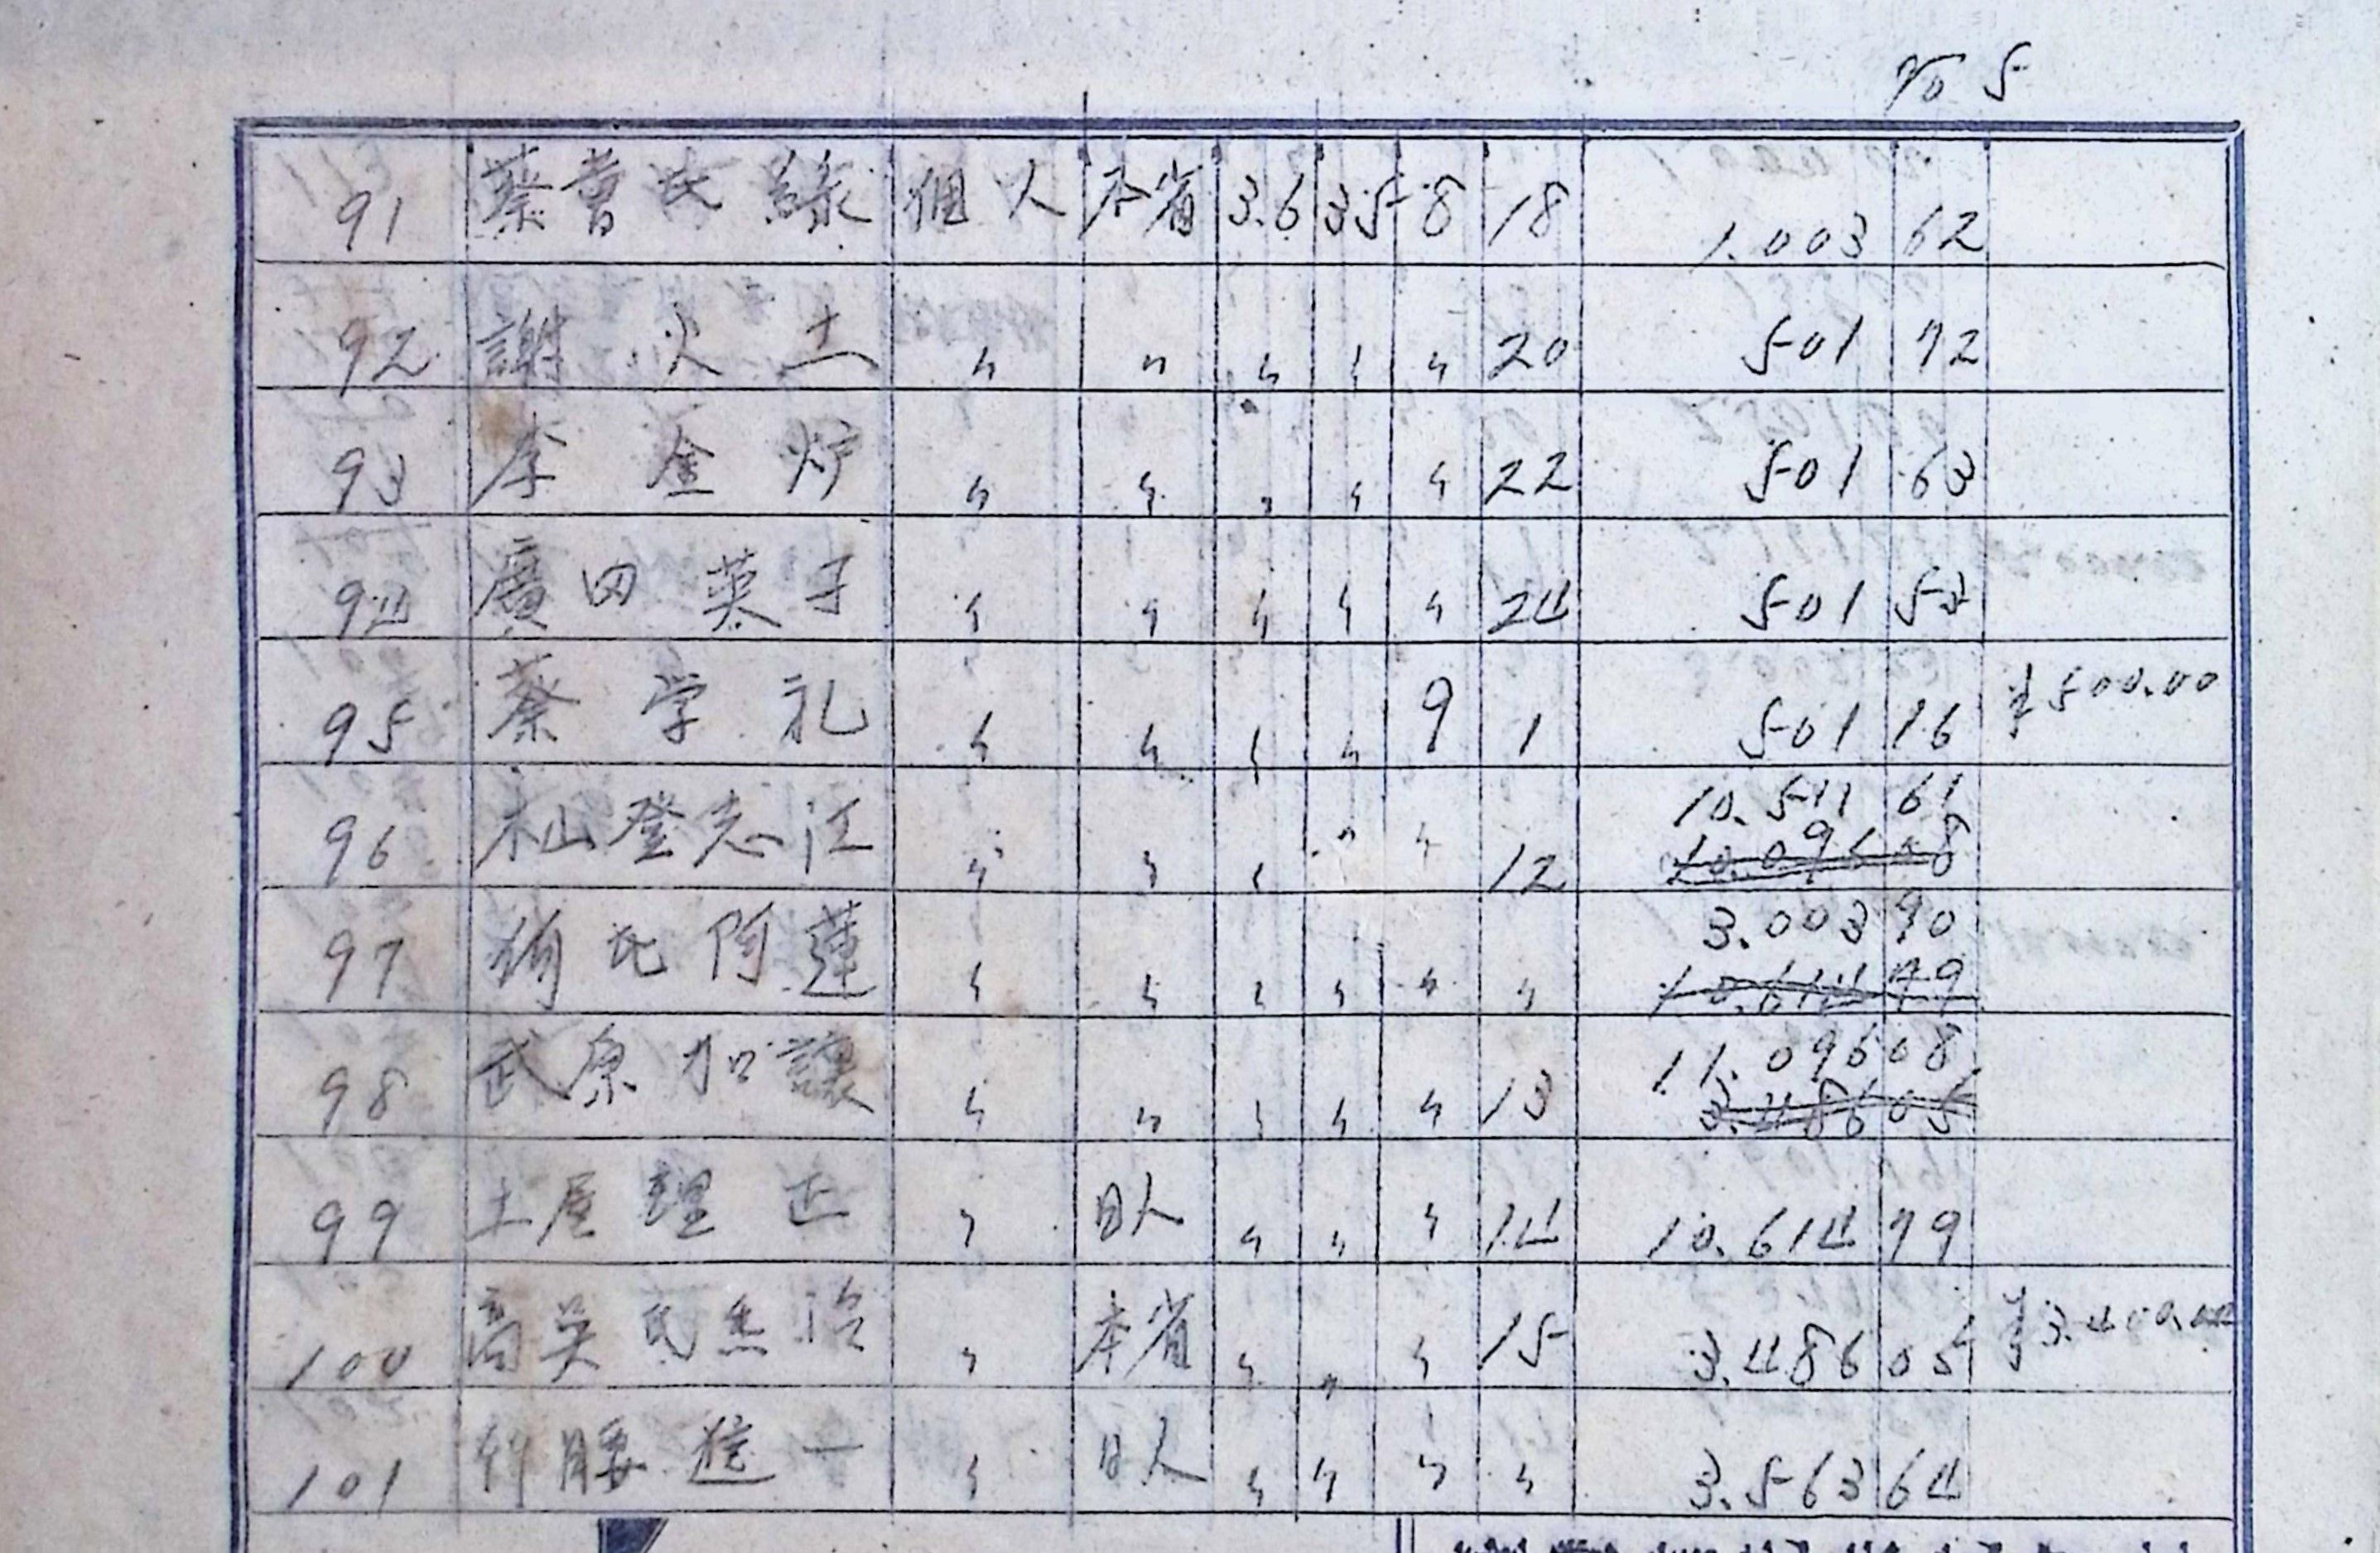 No 5
91 蔡曾氏緣 個人 本省 3.6 35 8 18 1.003 62
92 謝火土 〃 〃 〃 〃 〃 20 501 72
93 李金炉 〃 〃 〃 〃 〃 22 501 63
94 廣田英子 〃 〃 〃 〃 〃 24 501 53
95 蔡学礼 〃 〃 〃 〃 9 1 501 16 ¥500.00
96 登志江 〃 〃 〃 〃 〃 12 10.511 61
10.096 08
97 氏阿蓮 〃 〃 〃 〃 〃 〃 3.003 90
10.614 79
98 武原加讓 〃 〃 〃 〃 〃 13 11.096 08
3.486 05
99 土屋理正 〃 日人 〃 〃 〃 14 10.614 79
100 高吴氏 〃 本省 〃 〃 〃 15 3.486 05 ¥3.400.00
101 竹腰進一 〃 日人 〃 〃 〃 〃 3.563 64